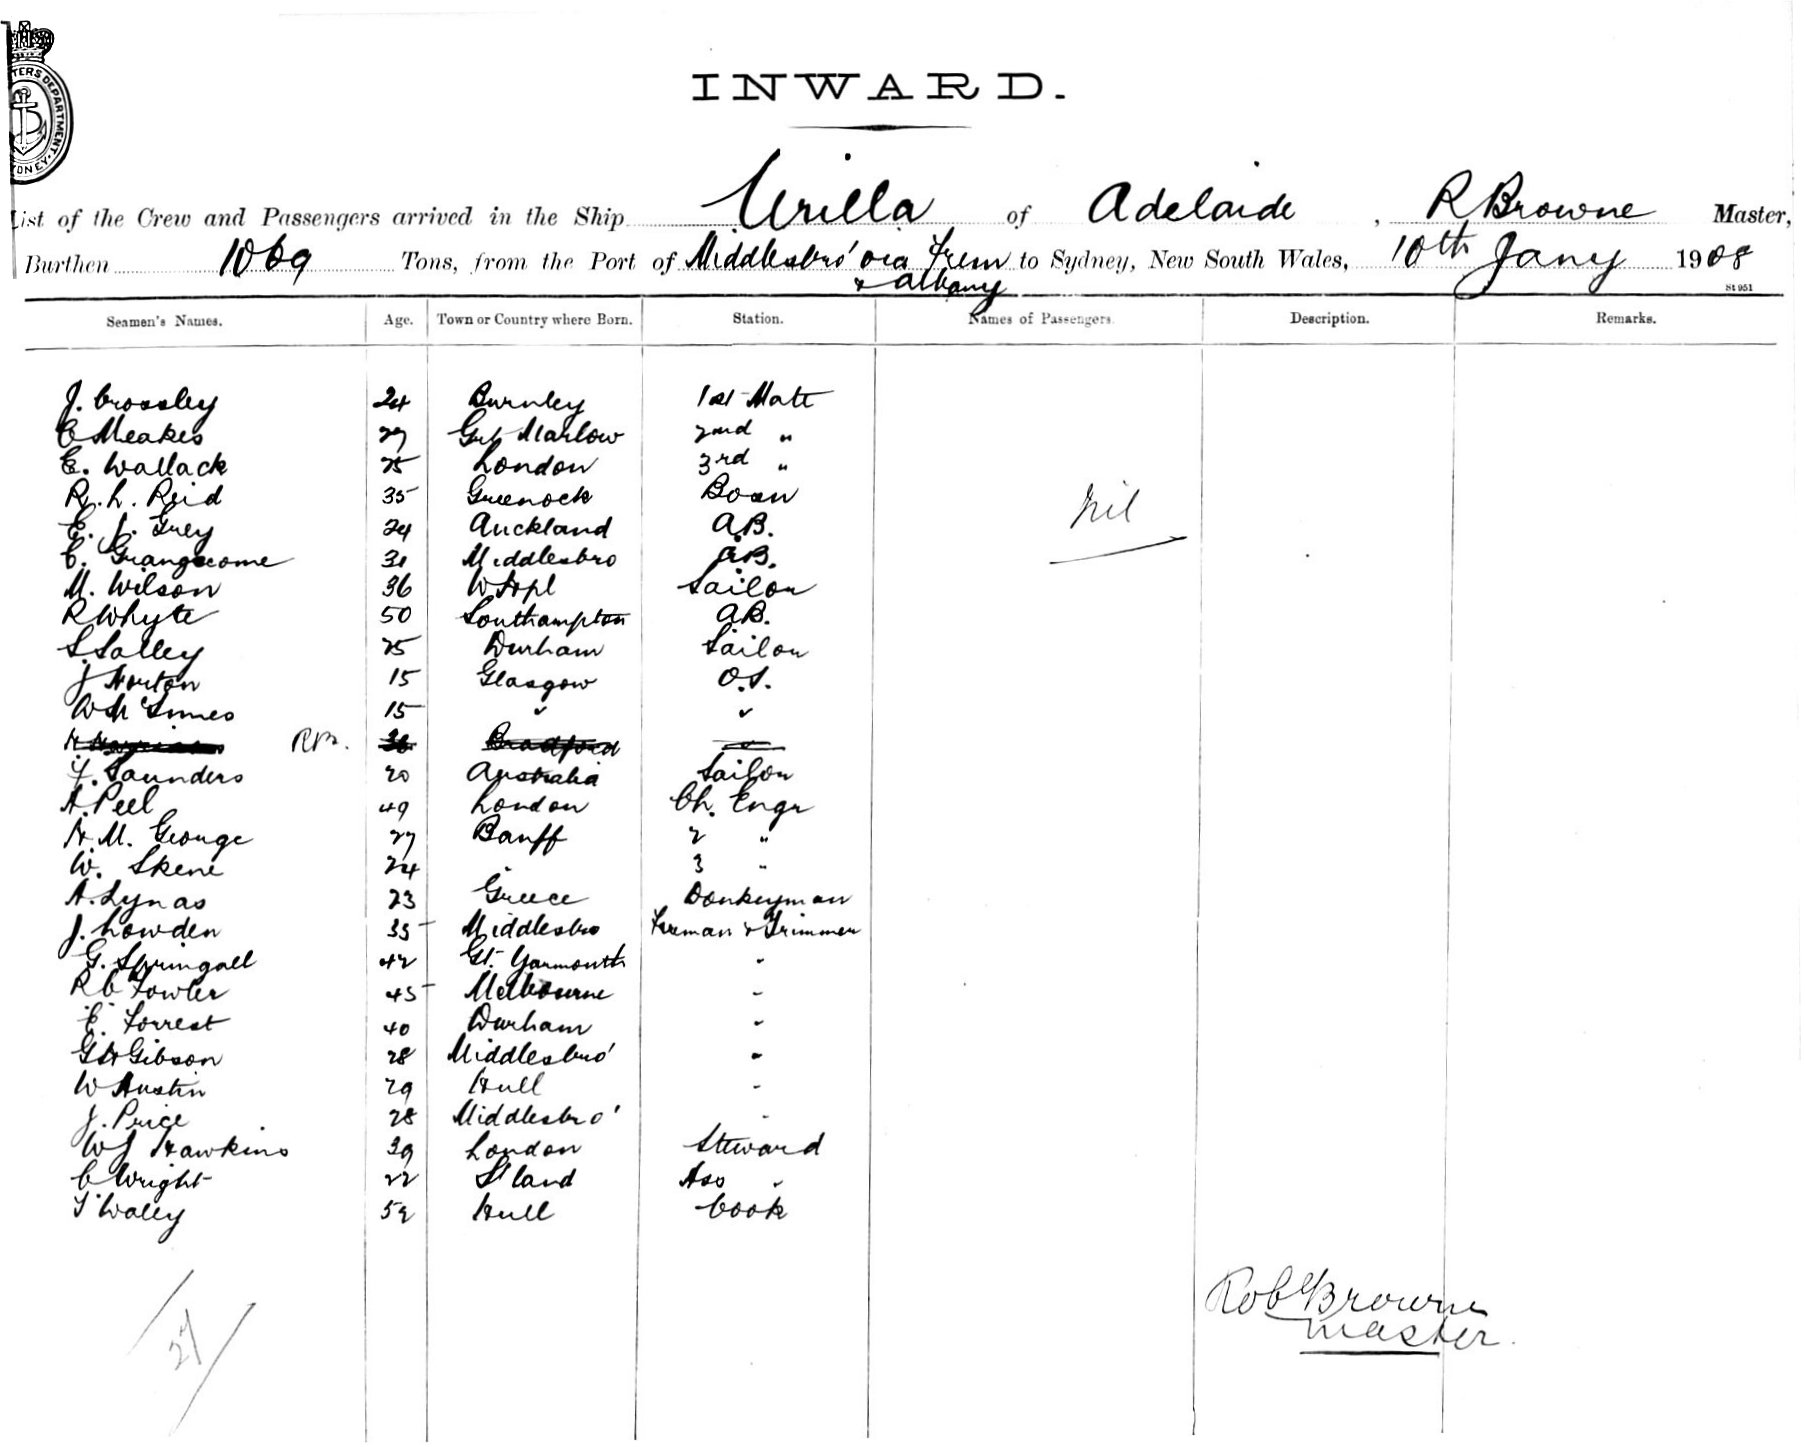 TERS DEPARTMENT. YDNEY.
INWARD.
List of the Crew and Passengers arrived in the Ship Urilla of Adelaide, R Browne Master,
Burthen 1069 Tons, from the Port of Middlesbro' via Frem to Sydney, New South Wales, 10th Jany 1908
& Albany
St 951
Seamen's Names. Age. Town or Country where Born. Station. Names of Passengers. Description. Remarks.
J. Crossley 24 Burnley 1st Mate
C Meakes 29 Gt Marlow 2nd "
E. Wallack 25 London 3rd "
R. L. Reid 35 Greenock Bosn
E. J. Grey 24 Auckland A.B.
Nil
C. 31 Middlesbro A.B.
M. Wilson 36 W Hpl Sailor
R Whyte 50 Southampton A.B.
S. Salley 25 Durham Sailor
J Norton 15 Glasgow O.S.
15 " "
R.B. Bradford
Saunders 20 Australia Sailor
A. Peel 49 London Ch. Engr
H. M. George 27 Banff 2 "
W. Skene 24 " 3 "
A. Lynas 23 Greece Donkeyman
J. Lowden 35 Middlesbro Fireman & Trimmer
G. Springall 42 Gt. Yarmouth "
R C Fowler 45 Melbourne "
E. Forrest 40 Durham "
G H Gibson 28 Middlesbro' "
W Austin 29 Hull "
J. Price 28 Middlesbro' "
W J Hawkins 39 London Steward
C Wright 22 S'land Ass "
T Walley 52 Hull Cook
27
Rob Browne
Master.